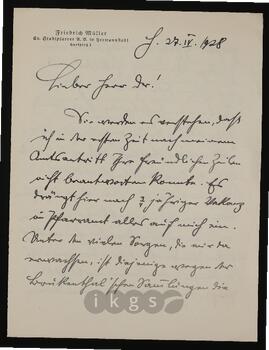 Friedrich Müller
Ev. Stadtpfarrer A. B. in Hermannstadt
H. 27. IV. 1928
Lieber Herr Dr.!
Sie werden es verstehen, daß
ich in der ersten Zeit nach meinem
Amtsantritt Ihre freundlichen Zeilen
nicht beantworten konnte. Es
drängt hier nach 3/4 jähriger Vakanz
im Pfarramt alles auf mich ein.
Unter den vielen Sorgen, die mir da
erwachsen, ist diejenige wegen der
Brukenthal'schen Sammlungen die
ikgs